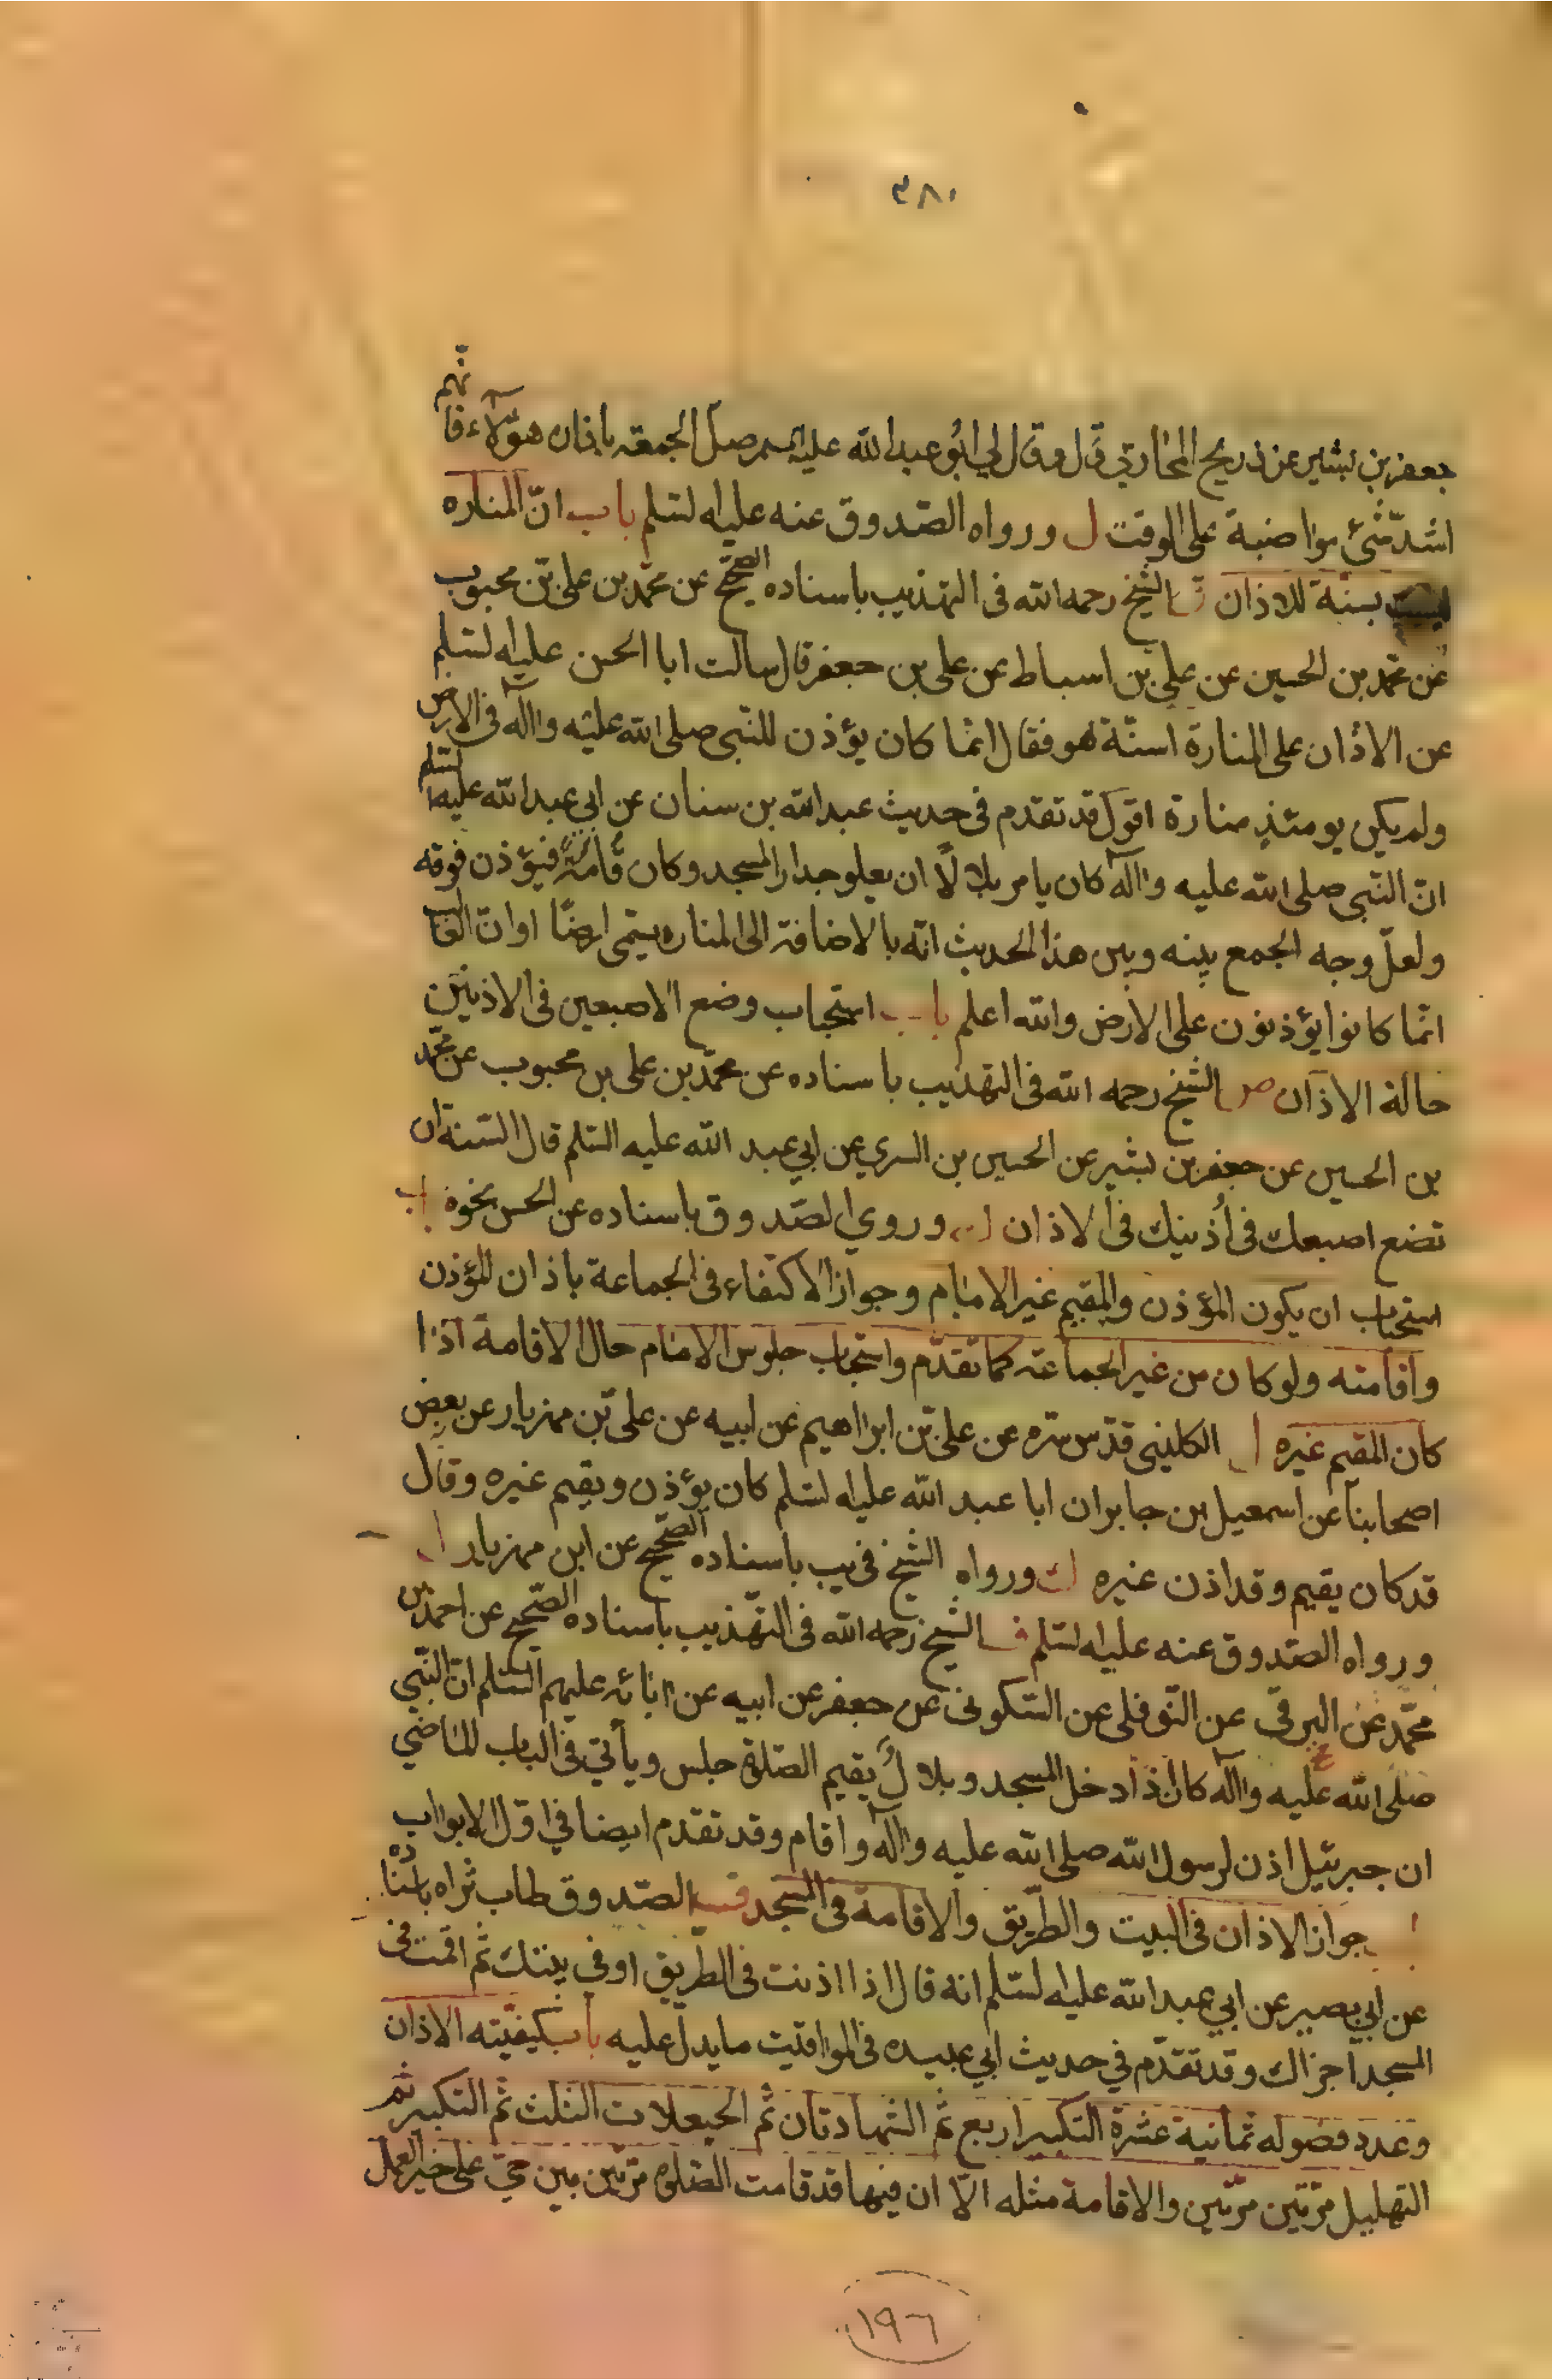 ٣٨٠
جعفر بن بشير عن ذريح المحاربي قال وقال لي ابو عبد الله عليه السلم صل الجمعة باذان هؤلاء فانهم
اشد شئ مواضبة على الوقت ل ورواه الصدوق عنه عليه السلم باب ان المناره
ليست بسنة للاذان الشيخ رحمه الله في التهذيب باسناده الصحيح عن محمد بن علي بن محبوب
عن محمد بن الحسين عن علي بن اسباط عن علي بن جعفر قال سالت ابا الحسن عليه السلم
عن الاذان على المنارة اسنة هو فقال انما كان يؤذن للنبي صلى الله عليه وآله في الارض
ولم يكن يومئذ منارة اقول قد تقدم في حديث عبد الله بن سنان عن ابي عبد الله عليه السلم
ان النبي صلى الله عليه وآله كان يامر بلالا ان يعلو جدار المسجد وكان قامة فيؤذن فوقه
ولعل وجه الجمع بينه وبين هذا الحديث انه بالاضافة الى المناره يسمى ارضا او ان الغالب
انما كانوا يؤذنون على الارض والله اعلم باب استحباب وضع الاصبعين في الاذنين
حالة الاذان ص الشيخ رحمه الله في التهذيب باسناده عن محمد بن علي بن محبوب عن محمد
بن الحسين عن جعفر بن بشير عن الحسين بن السري عن ابي عبد الله عليه السلم قال السنة ان
تضع اصبعك في أذنيك في الاذان وروي الصدوق باسناده عن الحسن نحوه باب
استحباب ان يكون المؤذن والمقيم غير الامام وجواز الاكتفاء في الجماعة باذان المؤذن
واقامته ولو كان من غير الجماعة كما تقدم واستحباب جلوس الامام حال الاقامة اذا
كان المقيم غيره الكليني قدس سره عن علي بن ابراهيم عن ابيه عن علي بن مهزيار عن بعض
اصحابنا عن اسمعيل بن جابر ان ابا عبد الله عليه السلم كان يؤذن ويقيم غيره وقال
قد كان يقيم وقد اذن غيره ورواه الشيخ في يب باسناده الصحيح عن ابن مهزيار
ورواه الصدوق عنه عليه السلم الشيخ رحمه الله في التهذيب باسناده الصحيح عن احمد بن
محمد عن البرقي عن النوفلي عن السكوني عن جعفر عن ابيه عن ابائه عليهم السلم ان النبي
صلى الله عليه وآله كان اذا دخل المسجد وبلال يقيم الصلوة جلس ويأتي في الباب الماضي
ان جبرئيل اذن لرسول الله صلى الله عليه وآله واقام وقد تقدم ايضا في اول الابواب
جواز الاذان في البيت والطريق والاقامة في المسجد الصدوق طاب ثراه باسناده
عن ابي بصير عن ابي عبد الله عليه السلم انه قال اذا اذنت في الطريق او في بيتك ثم اقمت في
المسجد اجزاك وقد تقدم في حديث ابي عبيده في المواقيت ما يدل عليه باب كيفيته الاذان
وعدد فصوله ثمانية عشرة التكبير اربع ثم الشهادتان ثم الحيعلات الثلث ثم التكبير ثم
التهليل مرتين مرتين والاقامة مثله الا ان فيها قد قامت الصلوة مرتين بين حي على خير العمل
١٩٦